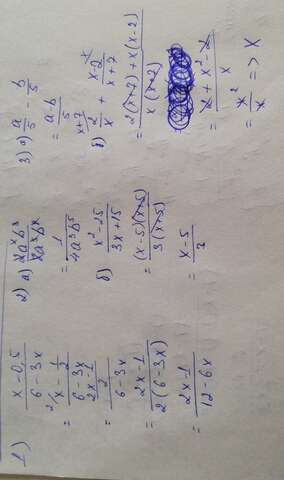 1) x - 0,5
6 - 3x
= x - 1/2
6 - 3x
= 2x - 1
2
6 - 3x
= 2x - 1
2 (6 - 3x)
= 2x - 1
12 - 6x
2) а)
= 1
4a³b⁵
б) x² - 25
3x + 15
= (x - 5)(x + 5)
3 (x + 5)
= x - 5
3
3) а) a/5 - b/5
= a - b
5
б) 2/x + x - 2
x + 2
= 2(x + 2) + x(x - 2)
x (x + 2)
= 2 + x² - 2
x
= x²/x => x